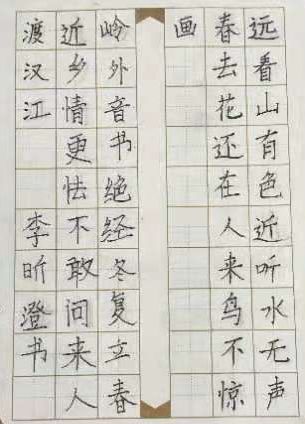 远看山有色近听水无声
春去花还在人来鸟不惊
画
岭外音书绝经冬复立春
近乡情更怯不敢问来人
渡汉江 李昕澄书